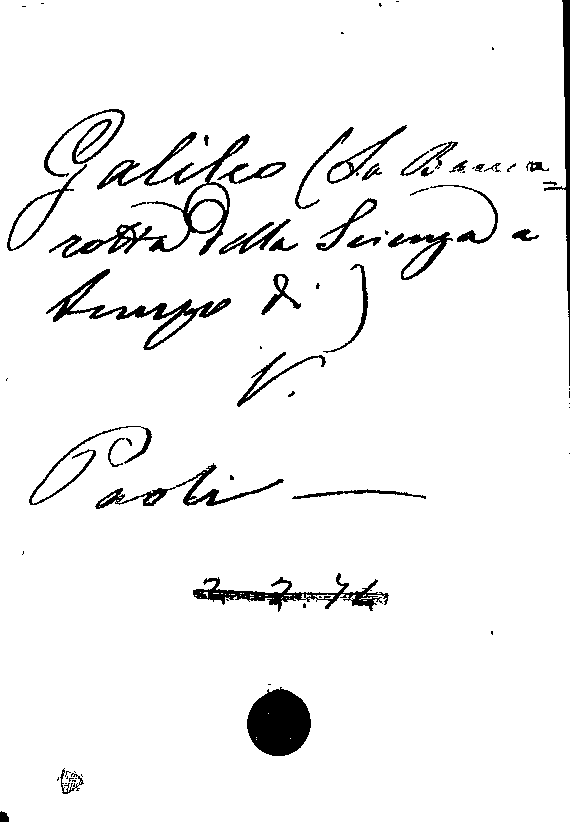 Galileo (La Banca=
rotta della Scienza a
tempo di )
V.
Paoli —